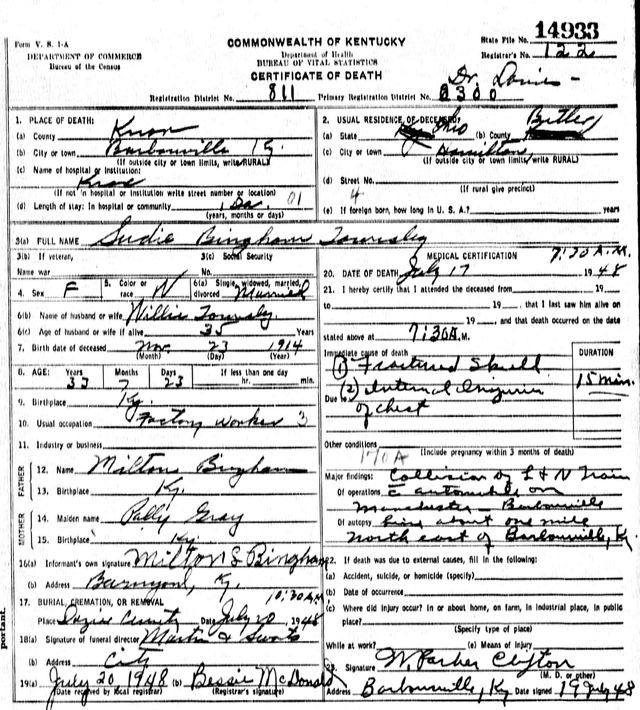 14933
Form V. S. 1-A
COMMONWEALTH OF KENTUCKY
State File No.
DEPARTMENT OF COMMERCE
Bureau of the Census
Department of Health
BUREAU OF VITAL STATISTICS
CERTIFICATE OF DEATH
Registrar's No. 122
Registration District No. 811 Primary Registration District No. 2300
1. PLACE OF DEATH:
(a) County Knox
(b) City or town Barbourville Ky.
(If outside city or town limits, write RURAL)
(c) Name of hospital or institution:
Knox
(If not in hospital or institution write street number or location)
(d) Length of stay: In hospital or community 1 Da. 01
(years, months or days)
2. USUAL RESIDENCE OF DECEASED:
(a) State Ohio (b) County Butler
(c) City or town Hamilton
(If outside city or town limits, write RURAL)
(d) Street No.
(If rural give precinct)
4
(e) If foreign born, how long in U. S. A.? years
3(a) FULL NAME Sudie Bingham Townsley
3(b) If veteran, Name war
3(c) Social Security No.
4. Sex F
5. Color or race W
6(a) Single, widowed, married, divorced Married
6(b) Name of husband or wife Willie Townsley
6(c) Age of husband or wife if alive 35 Years
7. Birth date of deceased Nov. 23 1914
(Month) (Day) (Year)
8. AGE: Years 33 Months 7 Days 23 If less than one day hr. min.
9. Birthplace Ky.
10. Usual occupation Factory Worker 3
11. Industry or business
FATHER
12. Name Milton Bingham
13. Birthplace Ky.
MOTHER
14. Maiden name Polly Gray
15. Birthplace Ky.
16(a) Informant's own signature Milton S Bingham
(b) Address Ky.
17. BURIAL, CREMATION, OR REMOVAL 10:30 A.M
Place Date July 20 1948
18(a) Signature of funeral director Martin &
(b) Address City
19(a) July 20, 1948 (b) Bessie McDonald
(Date received by local registrar) (Registrar's signature)
MEDICAL CERTIFICATION 7:30 A.M.
20. DATE OF DEATH July 17 1948
21. I hereby certify that I attended the deceased from 19
to 19 that I last saw him alive on
19 and that death occurred on the date
stated above at 7:30 A.M.
Immediate cause of death
DURATION
(1) Fractured Skull
15 min.
Due to (2) Internal Injuries
of chest
Other conditions
170A
(Include pregnancy within 3 months of death)
Major findings: Collision of L & N Train
Of operations c automobile on
Manchester - Barbourville
Of autopsy line about one mile
North east of Barbourville, Ky
22. If death was due to external causes, fill in the following:
(a) Accident, suicide, or homicide (specify)
(b) Date of occurrence
(c) Where did injury occur? In or about home, on farm, in industrial place, in public
place?
(Specify type of place)
While at work? (e) Means of Injury
Signature W. Parker Clifton
(M. D. or other)
Address Barbourville, Ky Date signed 19 July 48
portant.